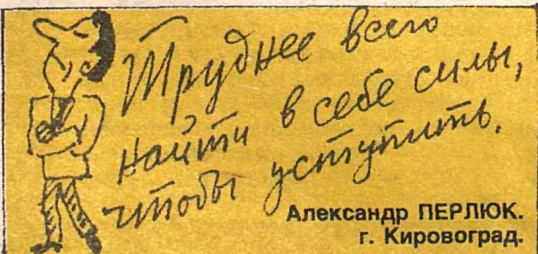 Труднее всего
найти в себе силы,
чтобы уступить.
Александр ПЕРЛЮК.
г. Кировоград.